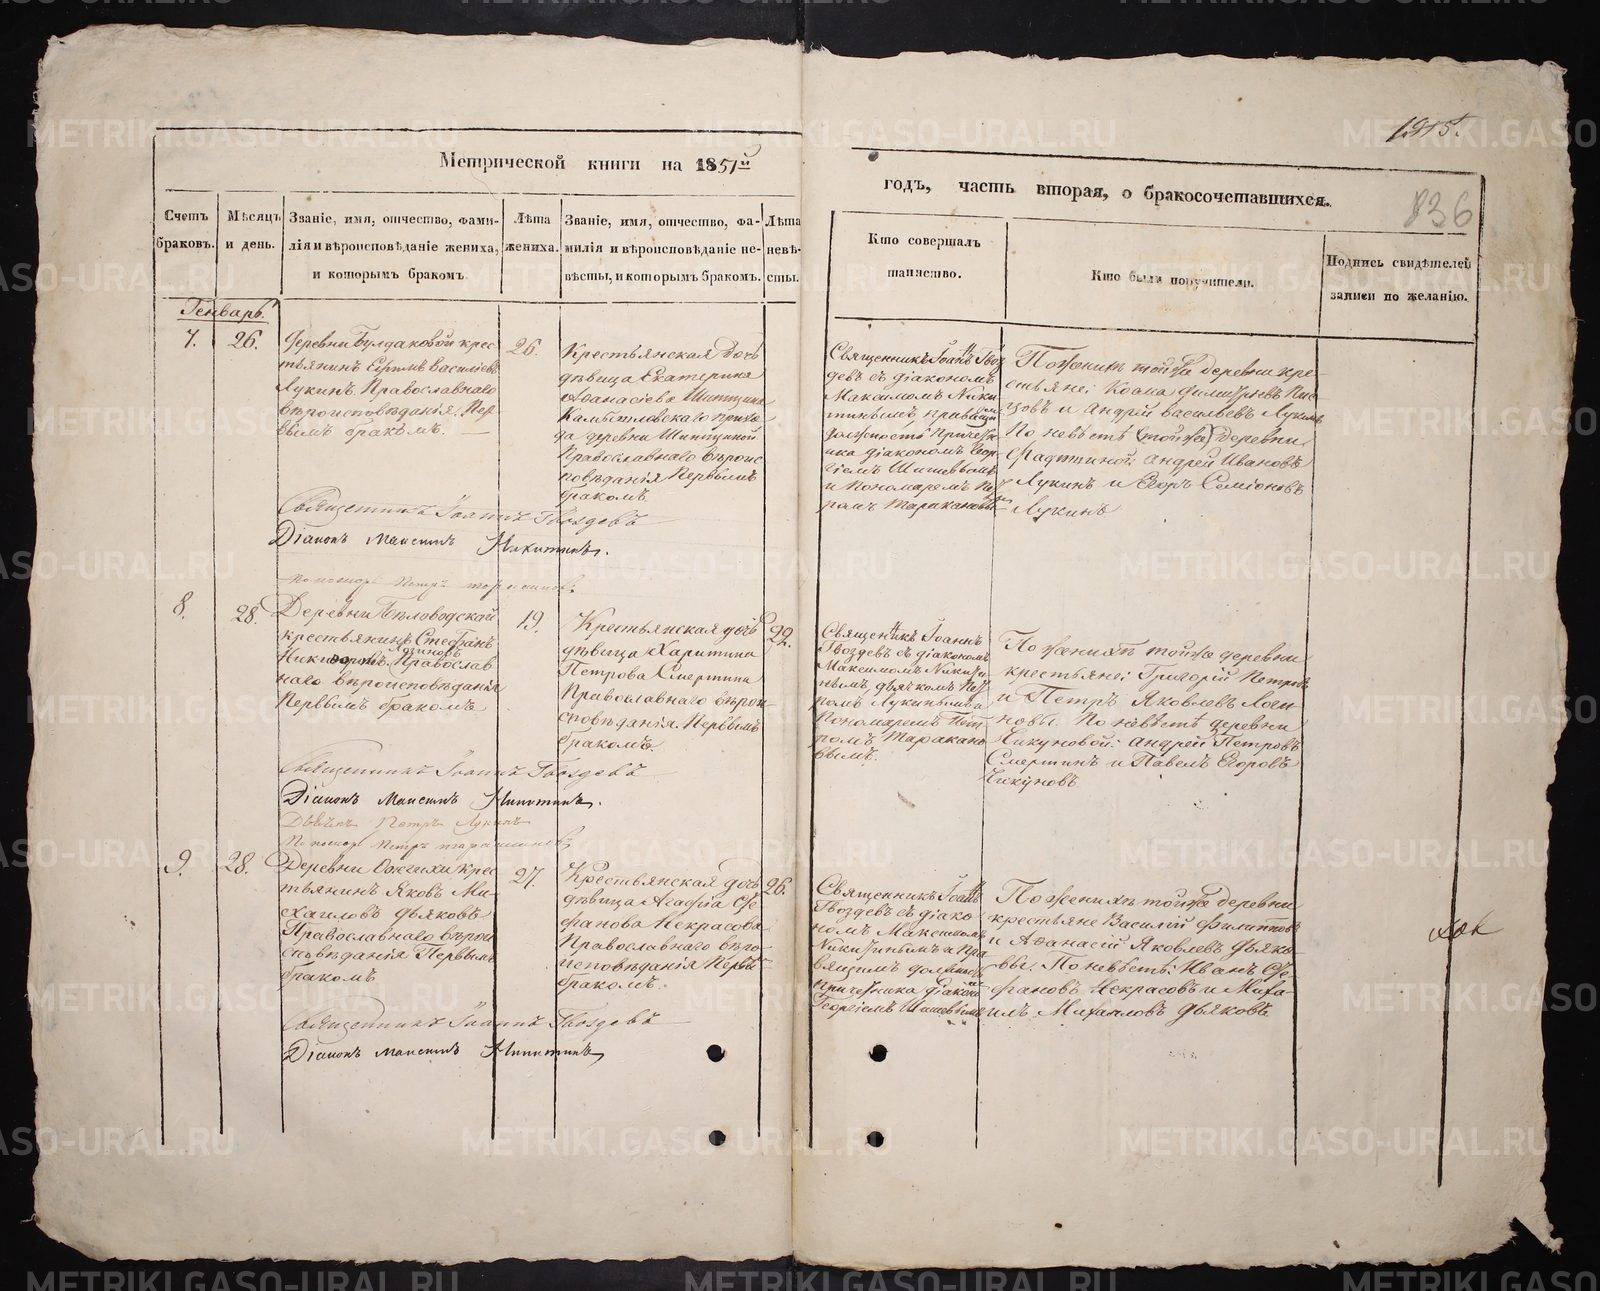 1915.
836
Метрической книги на 1851й
годъ, часть вторая, о бракосочетавшихся.
Счетъ браковъ.
Мѣсяцъ и день.
Званіе, имя, отчество, фами-
лія и вѣроисповѣданіе жениха,
и которымъ бракомъ.
Лѣта
жениха.
Званіе, имя, отчество, фа-
милія и вѣроисповѣданіе не-
вѣсты, и которымъ бракомъ.
Лѣта
невѣ-
сты.
Кто совершалъ
таинство.
Кто были поручители.
Подпись свидѣтелей
записи по желанію.
Генварь.
7.
26.
Деревни Булдаковой крес
тьянинъ Ефимъ Васильевъ
Лукинъ Православнаго
вѣроисповѣданія, Пер
вымъ бракомъ.
26.
Крестьянская дочь
дѣвица Екатерина
Афанасіева
Камышловскаго прихо
да деревни
Православнаго вѣроис
повѣданія Первымъ
бракомъ.
Священникъ Іоаннъ Гвоз
девъ съ діакономъ
Максимомъ Ники
тинымъ, правящ
должность Причетни
ка діакономъ Геор
гіемъ Шишевымъ
и Пономаремъ Пе
ромъ Таракановы
По женихѣ тойже деревни кре
стьяне:
и Андрей Васильевъ Лукинъ
По невѣстѣ (тойже) деревни
Андрей Ивановъ
Лукинъ и Егоръ Семіоновъ
Лукинъ
Священникъ Іоаннъ Гвоздевъ
Діаконъ Максимъ Никитинъ.
Пономарь Петръ Таракановъ
8.
28.
Деревни Бѣловодской
крестьянинъ Стефанъ
Никифоровъ Логиновъ Православ
наго вѣроисповѣданія
Первымъ бракомъ
19.
Крестьянская дочь
дѣвица Харитина
Петрова Смертина
Православнаго вѣрои
сповѣданія. Первымъ
бракомъ
22.
Священникъ Іоаннъ
Гвоздевъ съ діакономъ
Максимомъ Никити
нымъ, дьячкомъ Пет
ромъ Лукинымъ и
Пономаремъ Пет
ромъ Таракано
вымъ.
По женихѣ тойже деревни
крестьяне: Григорій Петровъ
и Петръ Яковлевъ Логи
новы. По невѣстѣ деревни
Чикуновой: Андрей Петровъ
Смертинъ и Павелъ Егоровъ
Чикуновъ
Священникъ Іоаннъ Гвоздевъ
Діаконъ Максимъ Никитинъ.
Дьячекъ Петръ Лукинъ
Пономарь Петръ Таракановъ
9.
28.
Деревни Ожгихи крес
тьянинъ Яковъ Ми-
хаиловъ Дьяковъ
Православнаго вѣрои
сповѣданія Первымъ
бракомъ
27.
Крестьянская дочь
дѣвица Агафія Сте
фанова Некрасова
Православнаго вѣро-
исповѣданія Первы
бракомъ.
26.
Священникъ Іоаннъ
Гвоздевъ съ діако-
номъ Максимомъ
Никитинымъ и пра
вящимъ должность
Причетника діакон
Георгіемъ Шишевымъ
По женихѣ тойже деревни
крестьяне Василій Филиповъ
и Афанасій Яковлевъ Дьяко
вы. По невѣстѣ: Иванъ Сте
фановъ Некрасовъ и Миха
илъ Михаиловъ Дьяковъ
Священникъ Іоаннъ Гвоздевъ
Діаконъ Максимъ Никитинъ
METRIKI.GASO-URAL.RU